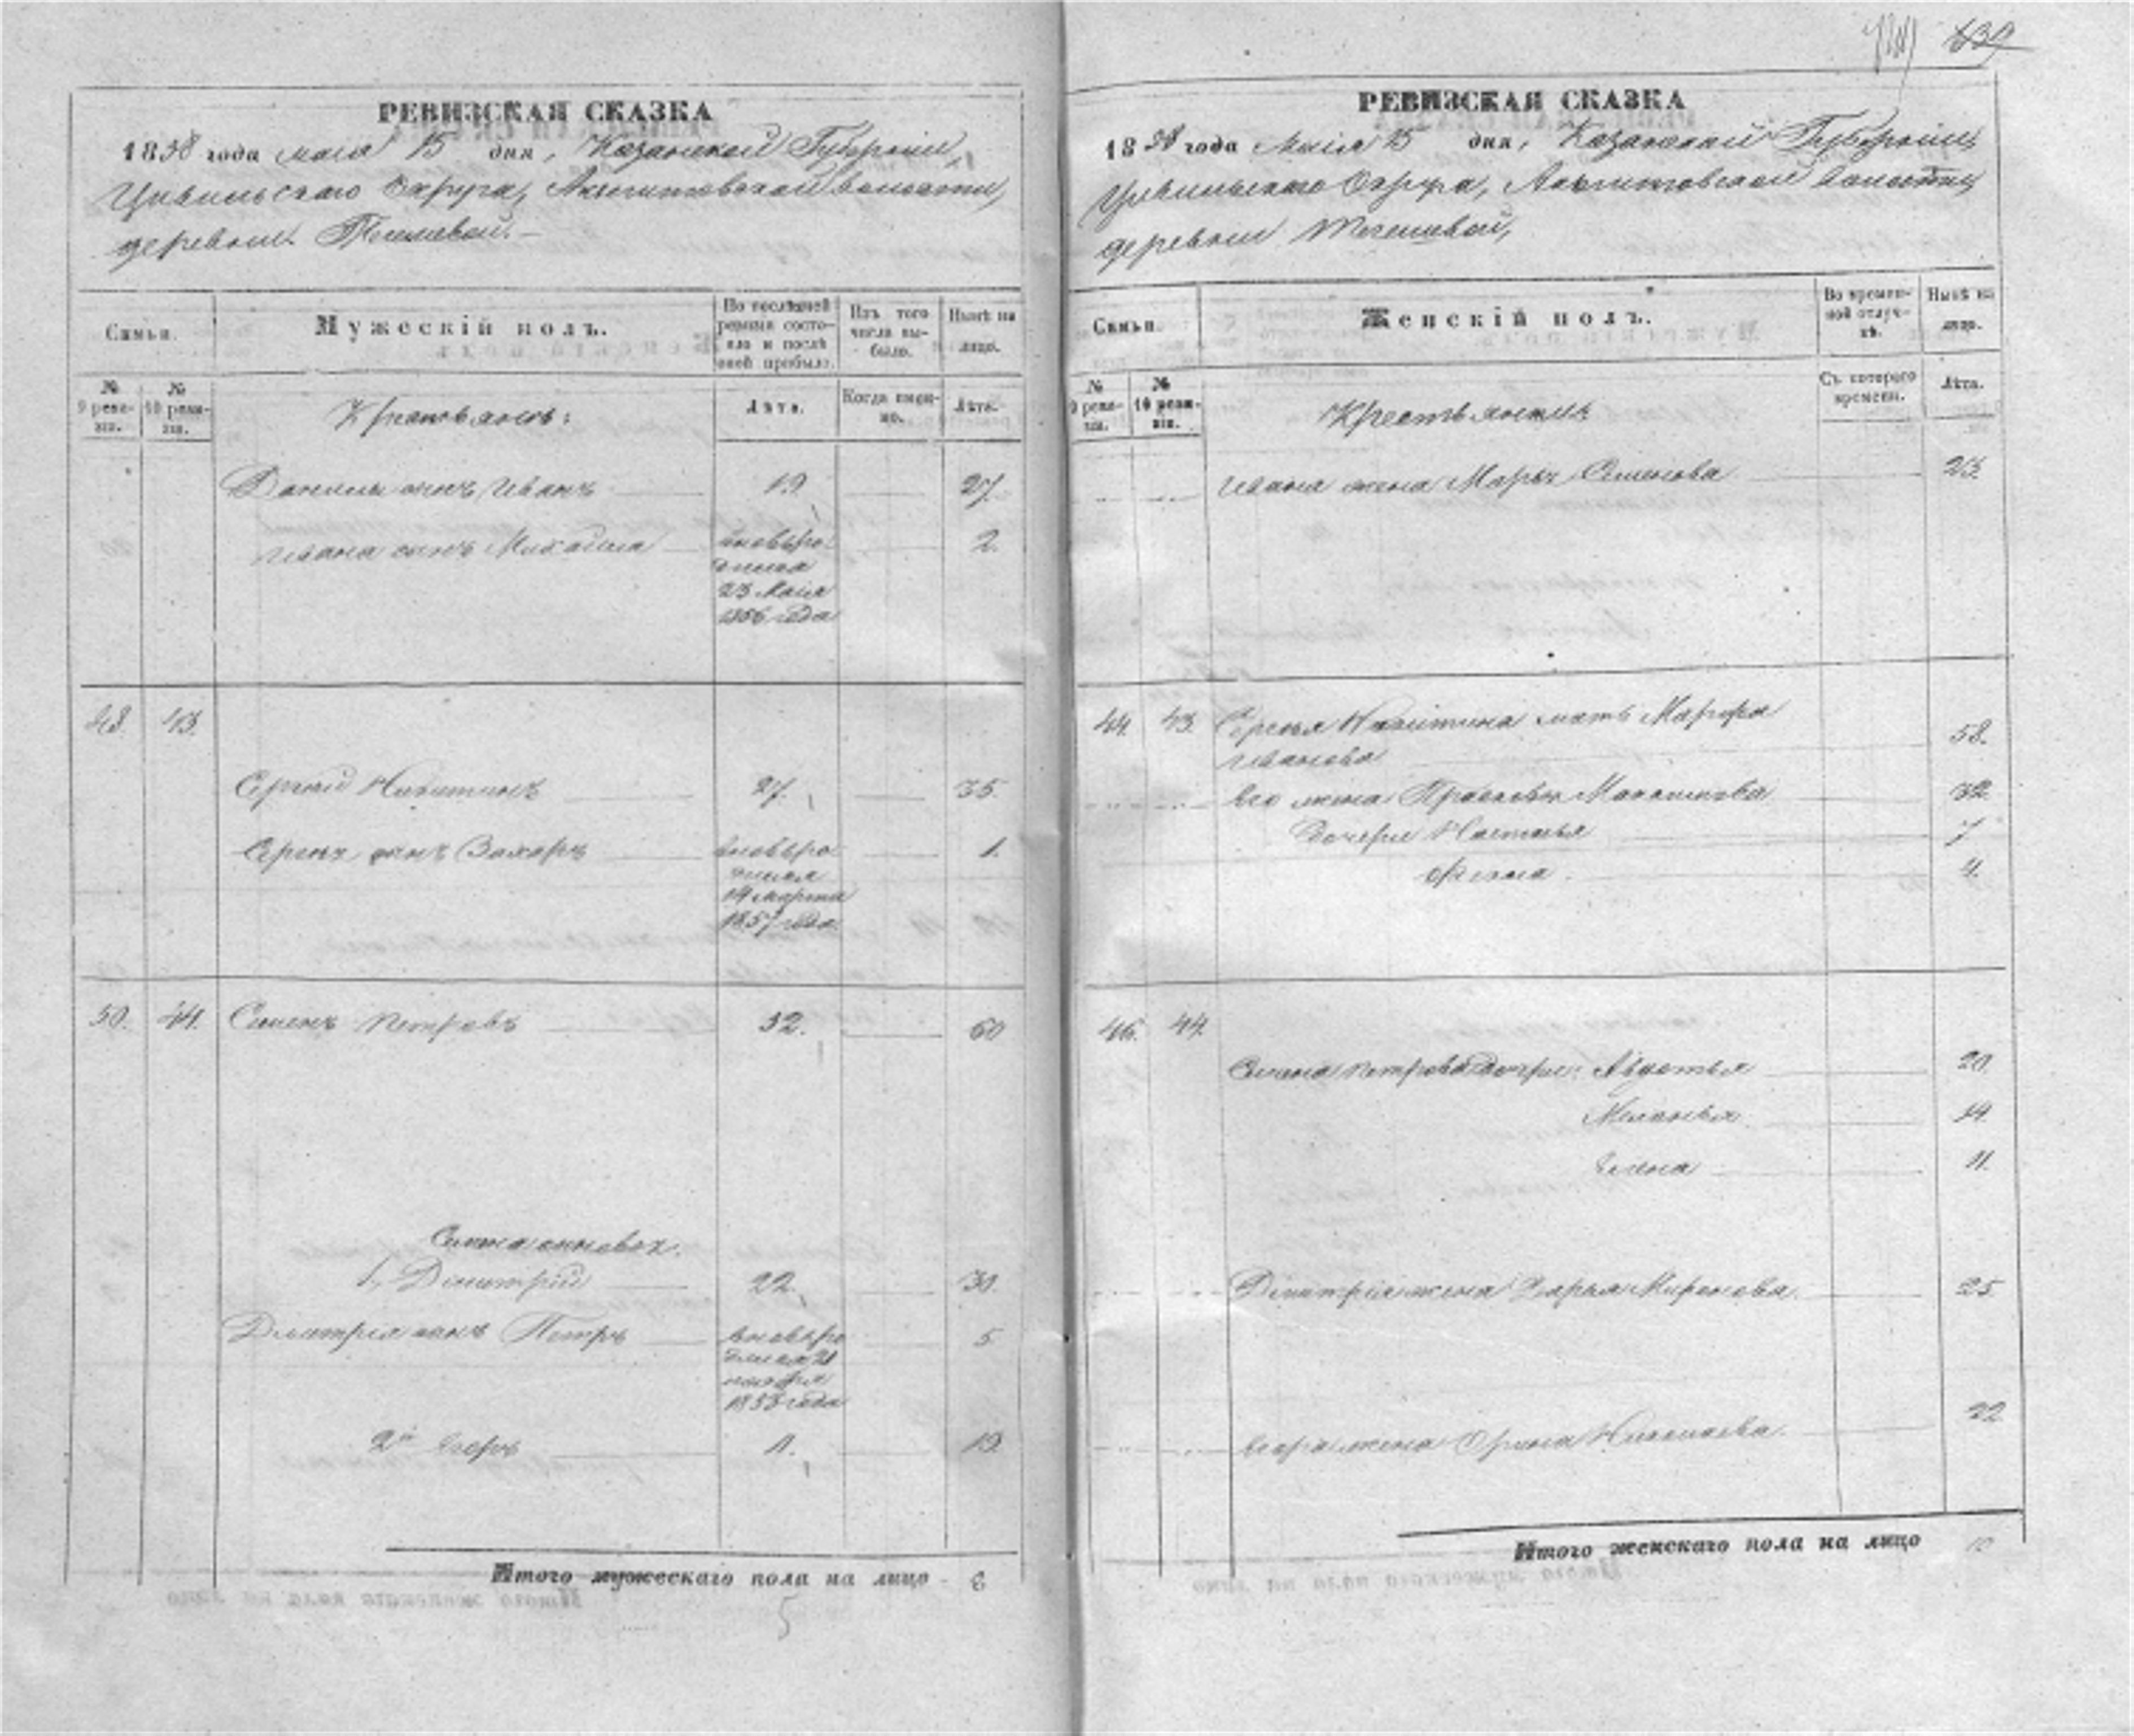 839
РЕВИЗСКАЯ СКАЗКА
1858 года мая 15 дня, Казанской Губернии,
Цивильскаго Округа, волости,
деревни
Семьи.
Мужескій полъ.
По послѣдней ревизіи состояло и послѣ оной прибыло.
Изъ того числа выбыло.
Нынѣ на лицо.
№ 9 ревизіи.
№ 10 ревизіи.
Крестьянъ:
Лѣта.
Когда именно.
Лѣта.
Данилы сынъ Иванъ 19 27.
Ивана сынъ Михаила вновьро 2.
дился
23 Маія
1856 года
48. 43.
Сергѣй Никитинъ 27. 35.
Сергѣя сынъ Захаръ вновьро 1.
дился
14 марта
1857 года
50. 44. Семенъ Петровъ 52. 60
Семена сыновья.
1, Димитрій 22. 30.
Дмитрія сынъ Петръ вновьро 5
дился 21
ноября
1853 года
2й Егоръ 11. 19.
Итого мужескаго пола на лицо 8
5
РЕВИЗСКАЯ СКАЗКА
1858 года Маія 15 дня, Казанской Губерніи,
Цивильскаго Округа, волости,
деревни
Семьи.
Женскій полъ.
Во временной отлучкѣ.
Нынѣ на лицо.
№ 9 ревизіи.
№ 10 ревизіи.
Крестьянки
Съ котораго времени.
Лѣта.
Ивана жена Марья Семенова 23.
44. 43. Сергѣя Никитина мать Марфа
Иванова 58.
Его жена Прасковья Максимова 32.
дочери Настасья 7
4.
46. 44.
Семена Петрова дочери: Авдотья 20.
Меланья 14.
Елена 11.
Димитрія жена Дарья Миронова. 25
Егора жена Орина Николаева. 22
Итого женскаго пола на лицо 10